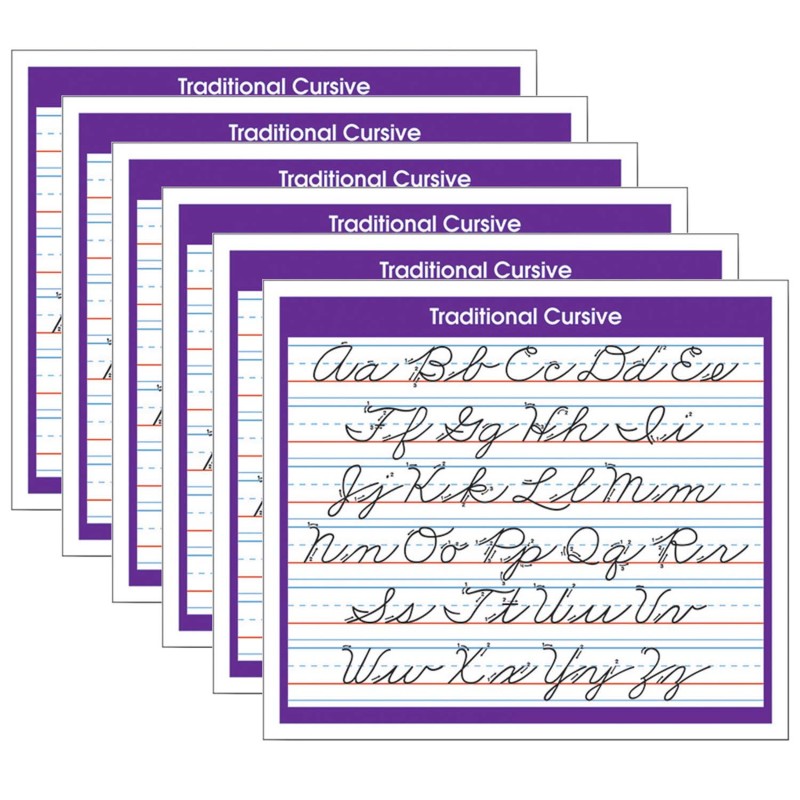 Traditional Cursive
Traditional Cursive
Traditional Cursive
Traditional Cursive
Traditional Cursive
Traditional Cursive
Aa Bb Cc Dd Ee
Ff Gg Hh Ii
Jj Kk Ll Mm
Nn Oo Pp Qq Rr
Ss Tt Uu Vv
Ww Xx Yy Zz